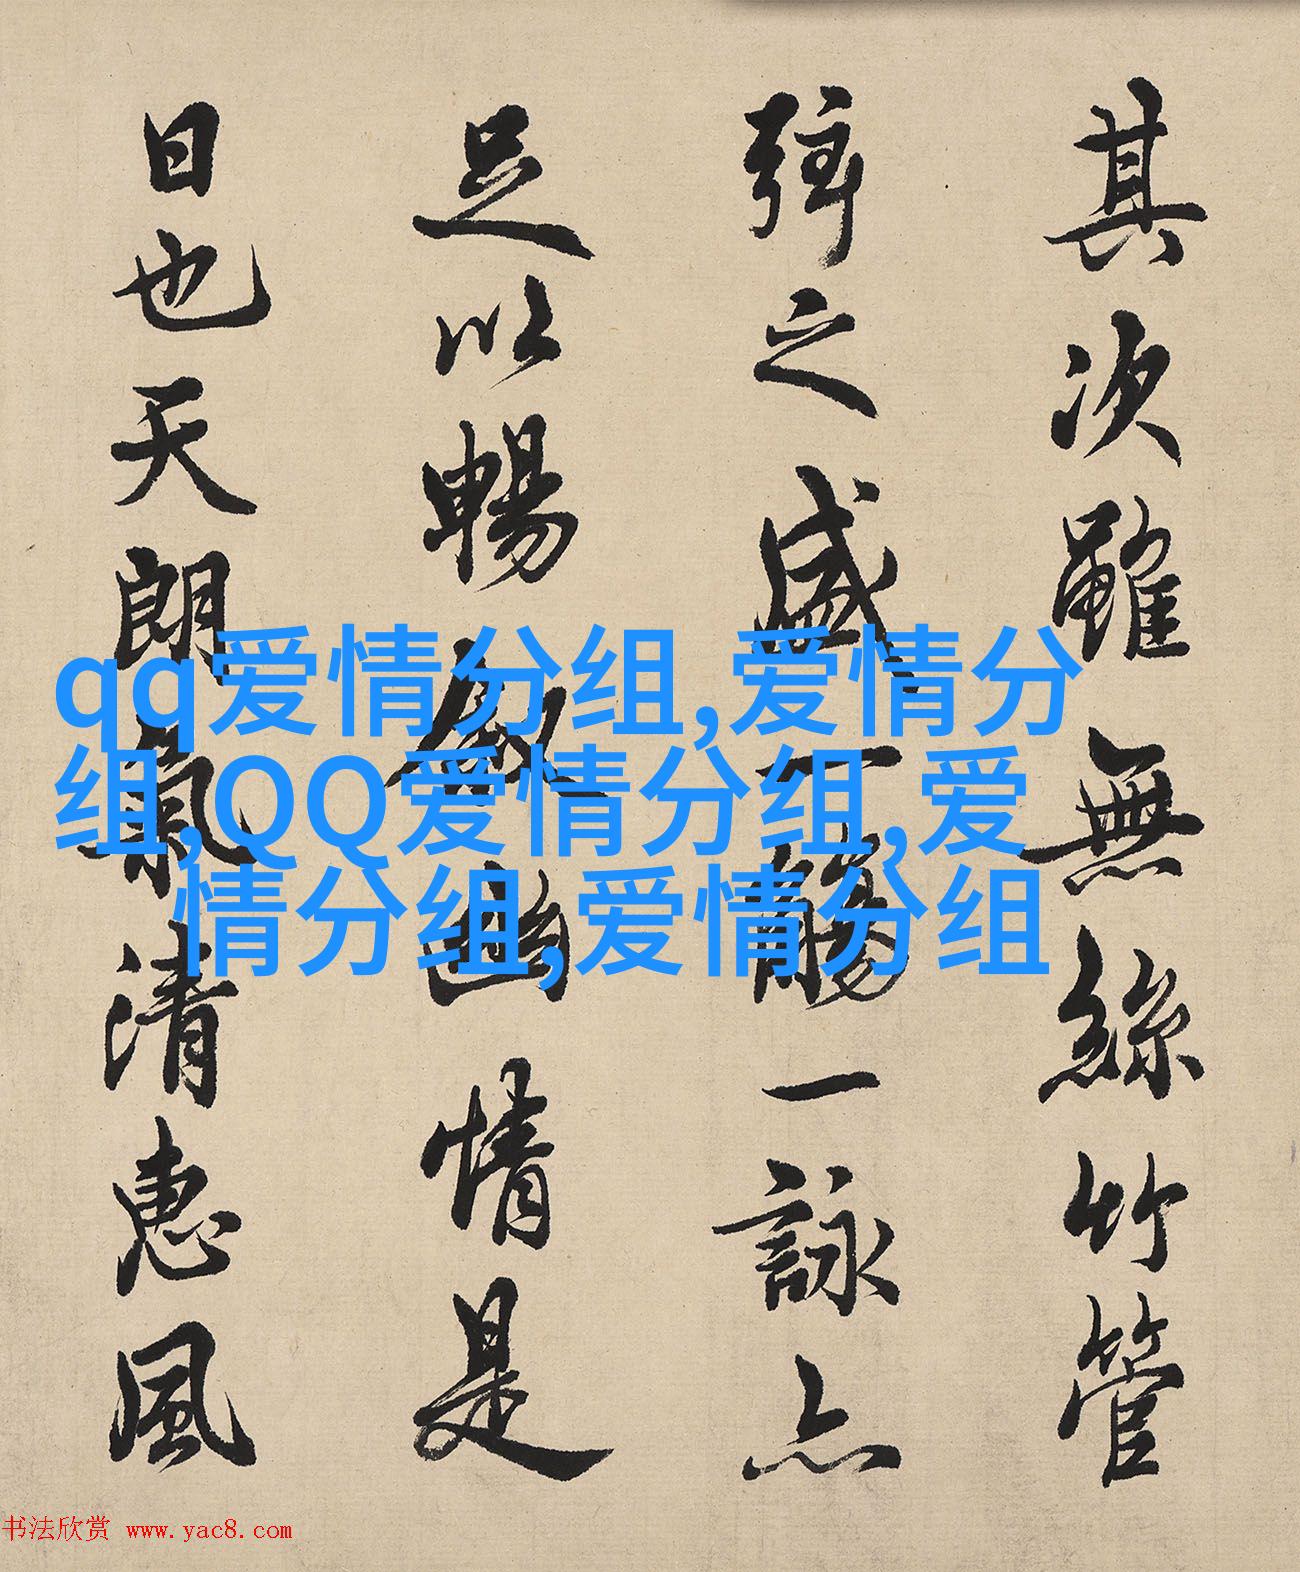 其次雖無絲竹管
弦之盛一觴一詠亦
足以暢敘幽情是
日也天朗氣清惠風
qq爱情分组,爱情分
组,QQ爱情分组,爱
情分组,爱情分组
书法欣赏 www.yac8.com